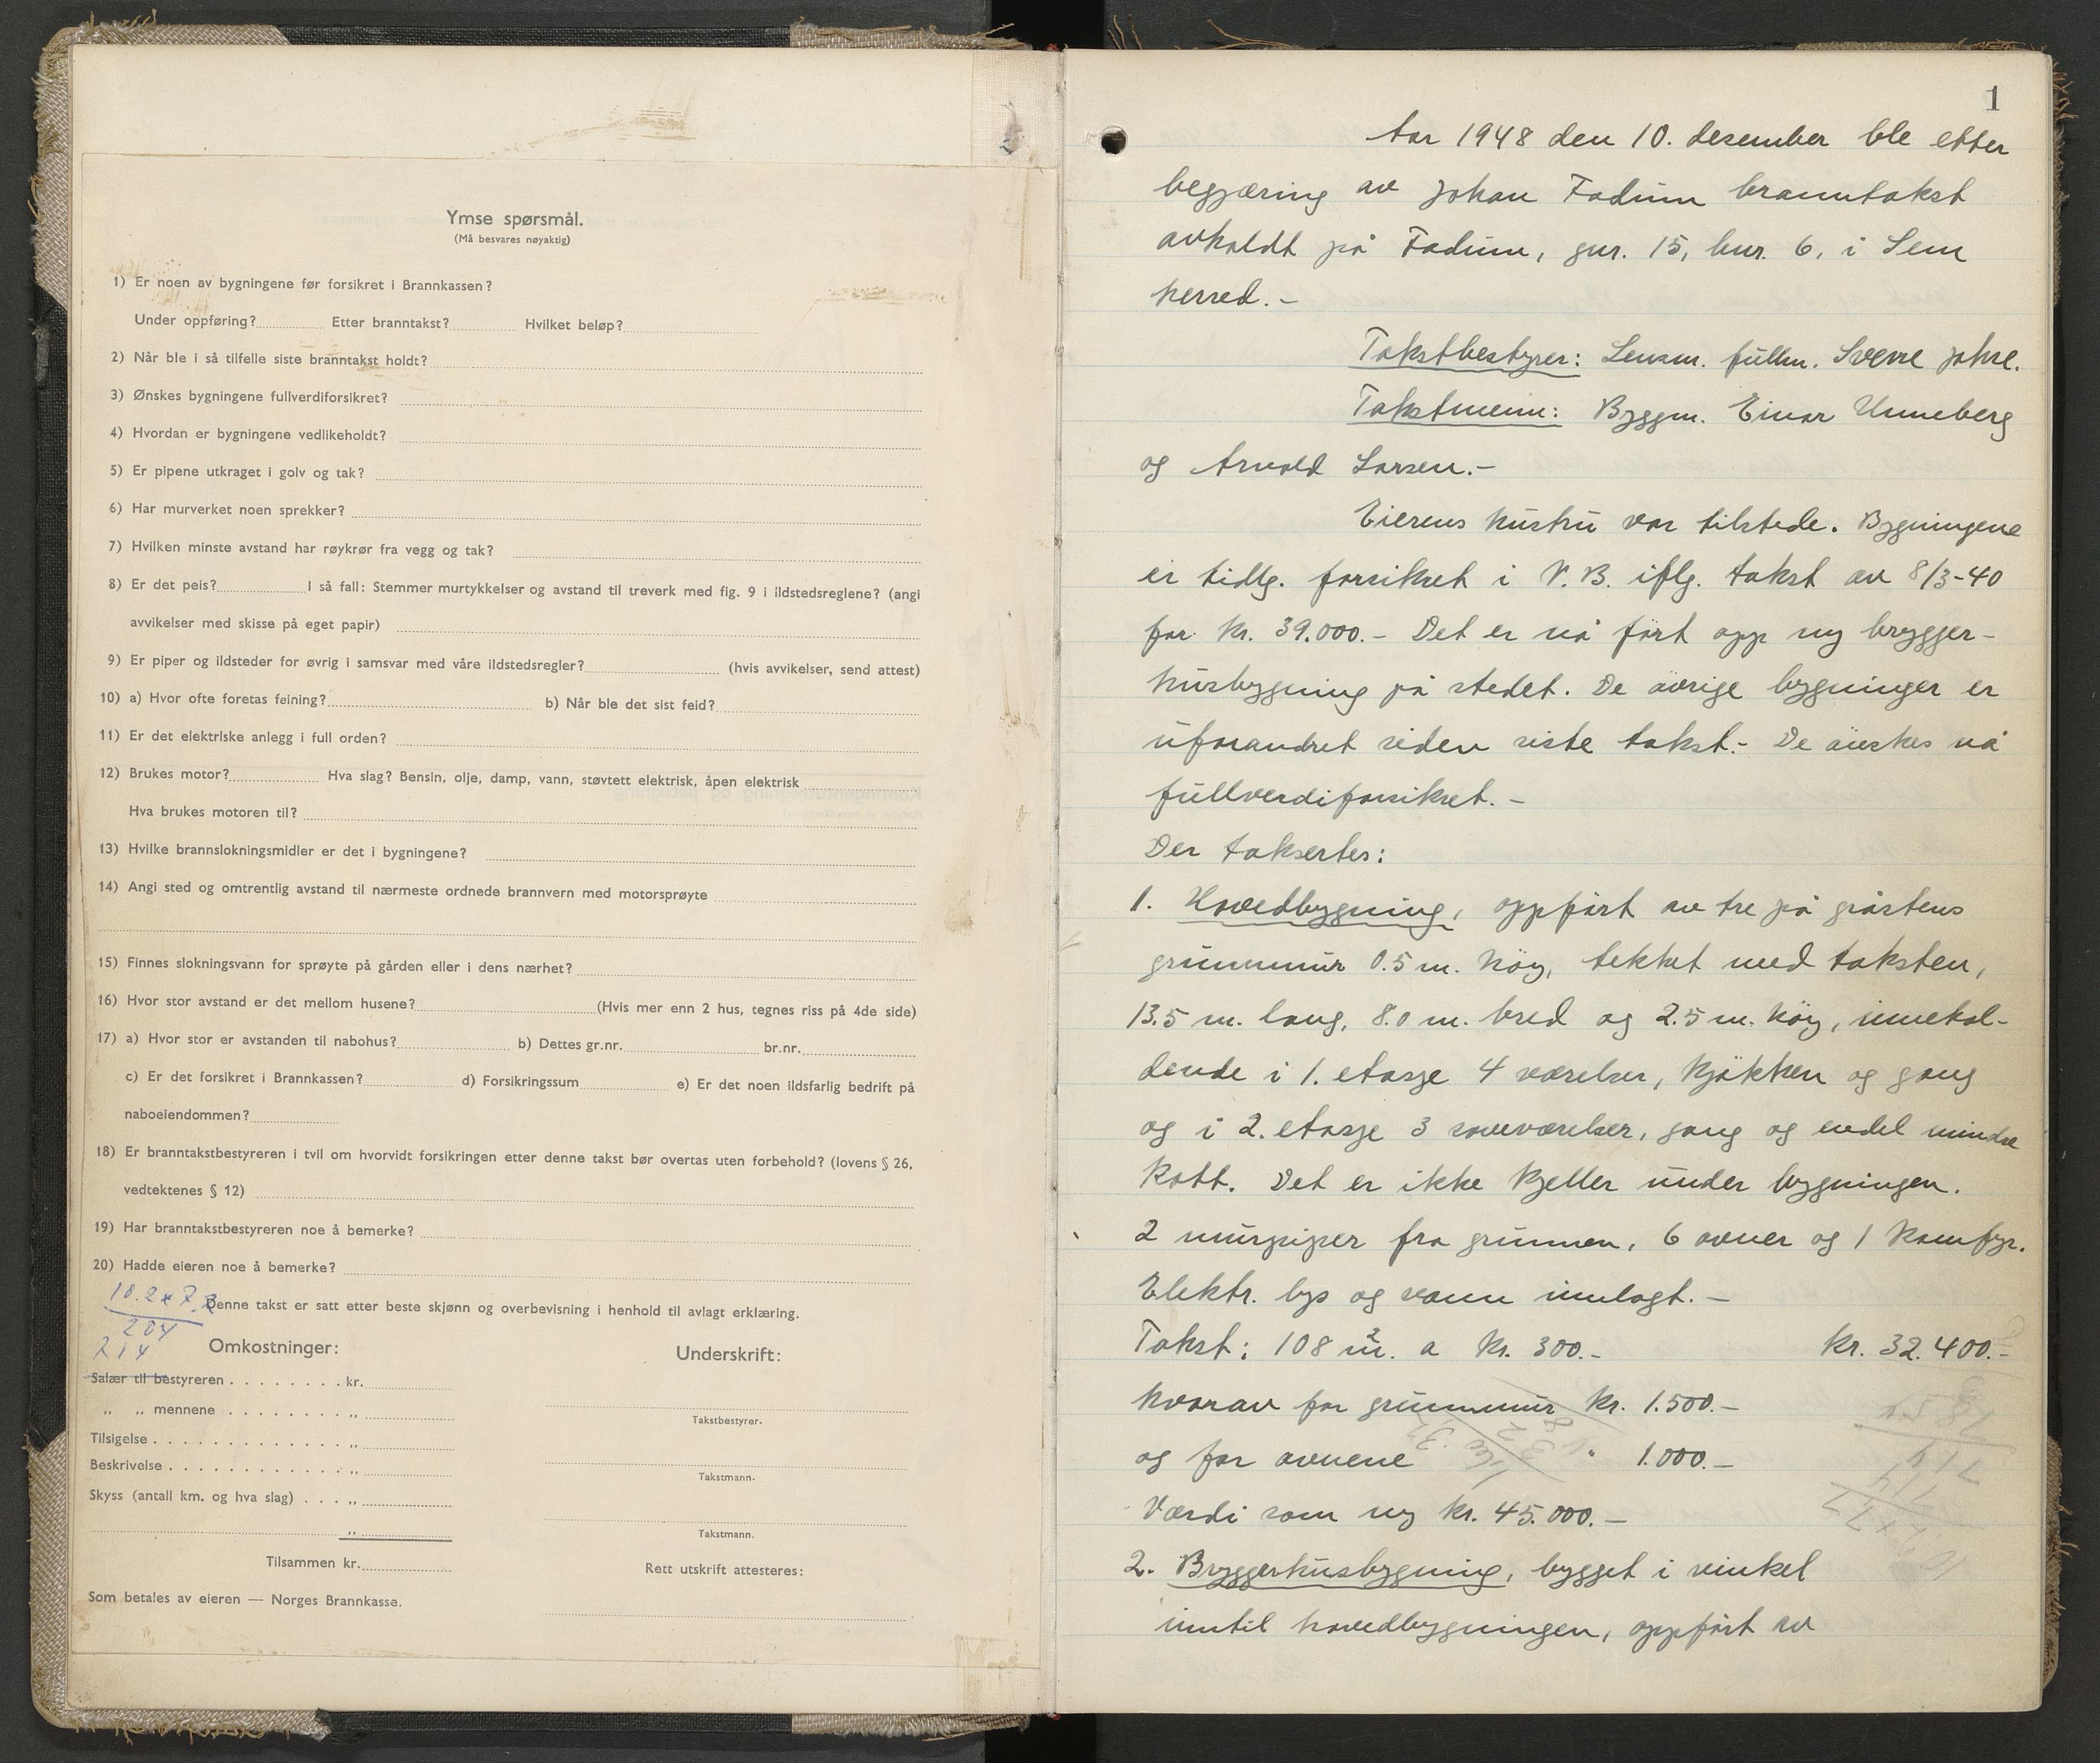 Ymse spørsmål.
(Må besvares nøyaktig)
1) Er noen av bygningene før forsikret i Brannkassen?
Under oppføring? Etter branntakst? Hvilket beløp?
2) Når ble i så tilfelle siste branntakst holdt?
3) Ønskes bygningene fullverdiforsikret?
4) Hvordan er bygningene vedlikeholdt?
5) Er pipene utkraget i golv og tak?
6) Har murverket noen sprekker?
7) Hvilken minste avstand har røykrør fra vegg og tak?
8) Er det peis? I så fall: Stemmer murtykkelser og avstand til treverk med fig. 9 i ildstedsreglene? (angi
avvikelser med skisse på eget papir)
9) Er piper og ildsteder for øvrig i samsvar med våre ildstedsregler? (hvis avvikelser, send attest)
10) a) Hvor ofte foretas feining? b) Når ble det sist feid?
11) Er det elektriske anlegg i full orden?
12) Brukes motor? Hva slag? Bensin, olje, damp, vann, støvtett elektrisk, åpen elektrisk
Hva brukes motoren til?
13) Hvilke brannslokningsmidler er det i bygningene?
14) Angi sted og omtrentlig avstand til nærmeste ordnede brannvern med motorsprøyte
15) Finnes slokningsvann for sprøyte på gården eller i dens nærhet?
16) Hvor stor avstand er det mellom husene? (Hvis mer enn 2 hus, tegnes riss på 4de side)
17) a) Hvor stor er avstanden til nabohus? b) Dettes gr.nr. br.nr.
c) Er det forsikret i Brannkassen? d) Forsikringssum e) Er det noen ildsfarlig bedrift på
naboeiendommen?
18) Er branntakstbestyreren i tvil om hvorvidt forsikringen etter denne takst bør overtas uten forbehold? (lovens § 26,
vedtektenes § 12)
19) Har branntakstbestyreren noe å bemerke?
20) Hadde eieren noe å bemerke?
Denne takst er satt etter beste skjønn og overbevisning i henhold til avlagt erklæring.
204
214
Omkostninger:
Salær til bestyreren . . . . . . . . kr.
„ „ mennene . . . . . . . . „
Tilsigelse . . . . . . . . . . . . . . „
Beskrivelse . . . . . . . . . . . . . „
Skyss (antall km. og hva slag) . . . „
„
Tilsammen kr.
Som betales av eieren — Norges Brannkasse.
Underskrift:
Takstbestyrer.
Takstmann.
Takstmann.
Rett utskrift attesteres:
1
Aar 1948 den 10. desember ble etter
begjæring av Johan Fadum branntakst
avholdt på Fadum, gnr. 15, bnr. 6, i Sem
herred.-
Takstbestyrer: Lensm. fullm. Sverre Johre.
Takstmenn: Byggm. Einar Unneberg
og Arnold Larsen.-
Eierens hustru var tilstede. Bygningene
er tidlg. forsikret i N.B. iflg. takst av 8/3-40
for kr. 39.000.- Det er nå ført opp ny brygger-
husbygning på stedet. De øvrige bygninger er
uforandret siden siste takst.- De ønskes nå
fullverdiforsikret.-
Der taksertes:
1. Hovedbygning, oppført av tre på gråstens
grunnmur 0.5 m. høy, tekket med taksten,
13.5 m. lang, 8.0 m. bred og 2.5 m. høy, innehol-
dende i 1. etasje 4 værelser, kjøkken og gang
og i 2. etasje 3 soveværelser, gang og endel mindre
kott. Det er ikke kjeller under bygningen.
2 murpiper fra grunnen, 6 ovner og 1 komfyr.
Elektr. lys og vann innlagt.-
Takst: 108 m². a kr. 300.- kr. 32.400.-
hvorav for grunnmur kr. 1.500.-
og for ovnene " 1.000.-
Værdi som ny kr. 45.000.-
2. Bryggerhusbygning, bygget i vinkel
inntil hovedbygningen, oppført av